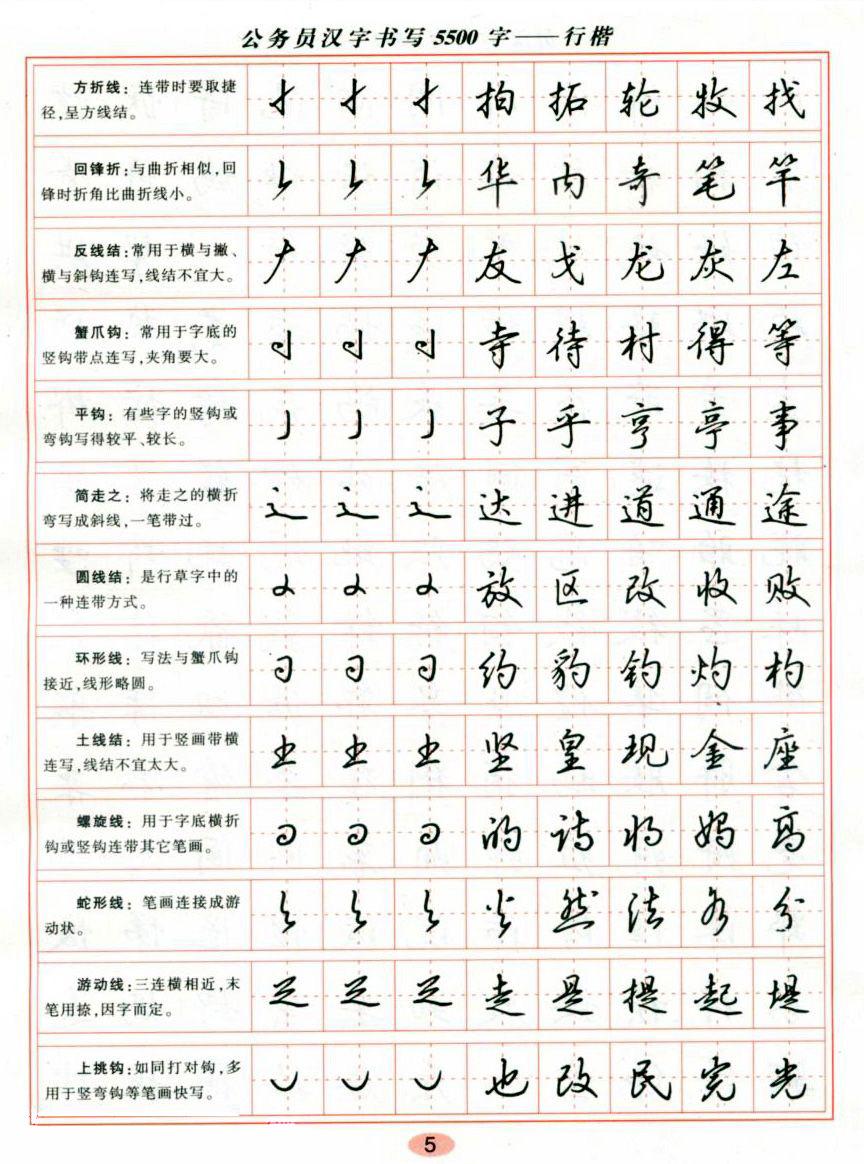 公务员汉字书写 5500 字——行楷
方折线：连带时要取捷
径，呈方线结。
拍 拓 轮 牧 找
回锋折：与曲折相似，回
锋时折角比曲折线小。
华 内 奇 笔 竿
反线结：常用于横与撇、
横与斜钩连写，线结不宜大。
友 戈 龙 灰 左
蟹爪钩：常用于字底的
竖钩带点连写，夹角要大。
寺 待 村 得 等
平钩：有些字的竖钩或
弯钩写得较平、较长。
子 乎 亨 亭 事
简走之：将走之的横折
弯写成斜线，一笔带过。
达 进 道 通 途
圆线结：是行草字中的
一种连带方式。
放 区 改 收 败
环形线：写法与蟹爪钩
接近，线形略圆。
约 豹 钓 灼 杓
土线结：用于竖画带横
连写，线结不宜太大。
坚 皇 现 金 座
螺旋线：用于字底横折
钩或竖钩连带其它笔画。
的 诗 将 妈 高
蛇形线：笔画连接成游
动状。
然 法 分
游动线：三连横相近，末
笔用捺，因字而定。
走 是 提 起 堤
上挑钩：如同打对钩，多
用于竖弯钩等笔画快写。
也 改 民 完 光
5